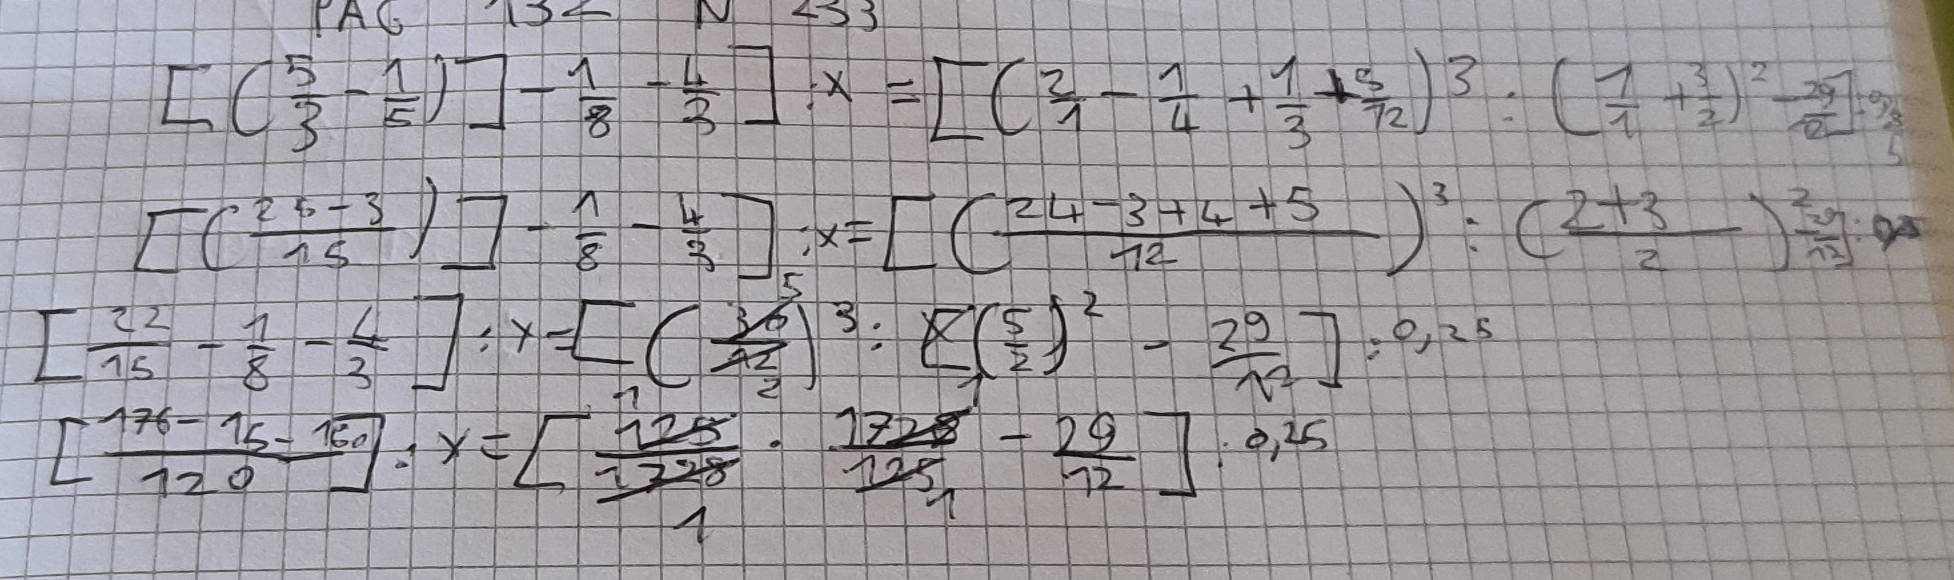 PAG 132 N 233
[(5/3 - 1/5)] - 1/8 - 4/3] : x = [(2/1 - 1/4 + 1/3 + 5/12)^3 : (1/1 + 3/2)^2 - 29/12] :
[(25-3/15)] - 1/8 - 4/3] : x = [(24-3+4+5/12)^3 : (2+3/2)^2 29/12] :
[22/15 - 1/8 - 4/3] : x = [(30/12 5/2)^3 : (5/2)^2 - 29/12] : 0,25
[176-15-160/120] : x = [125/1728 1/1 · 1728/125 1/1 - 29/12] : 0,25